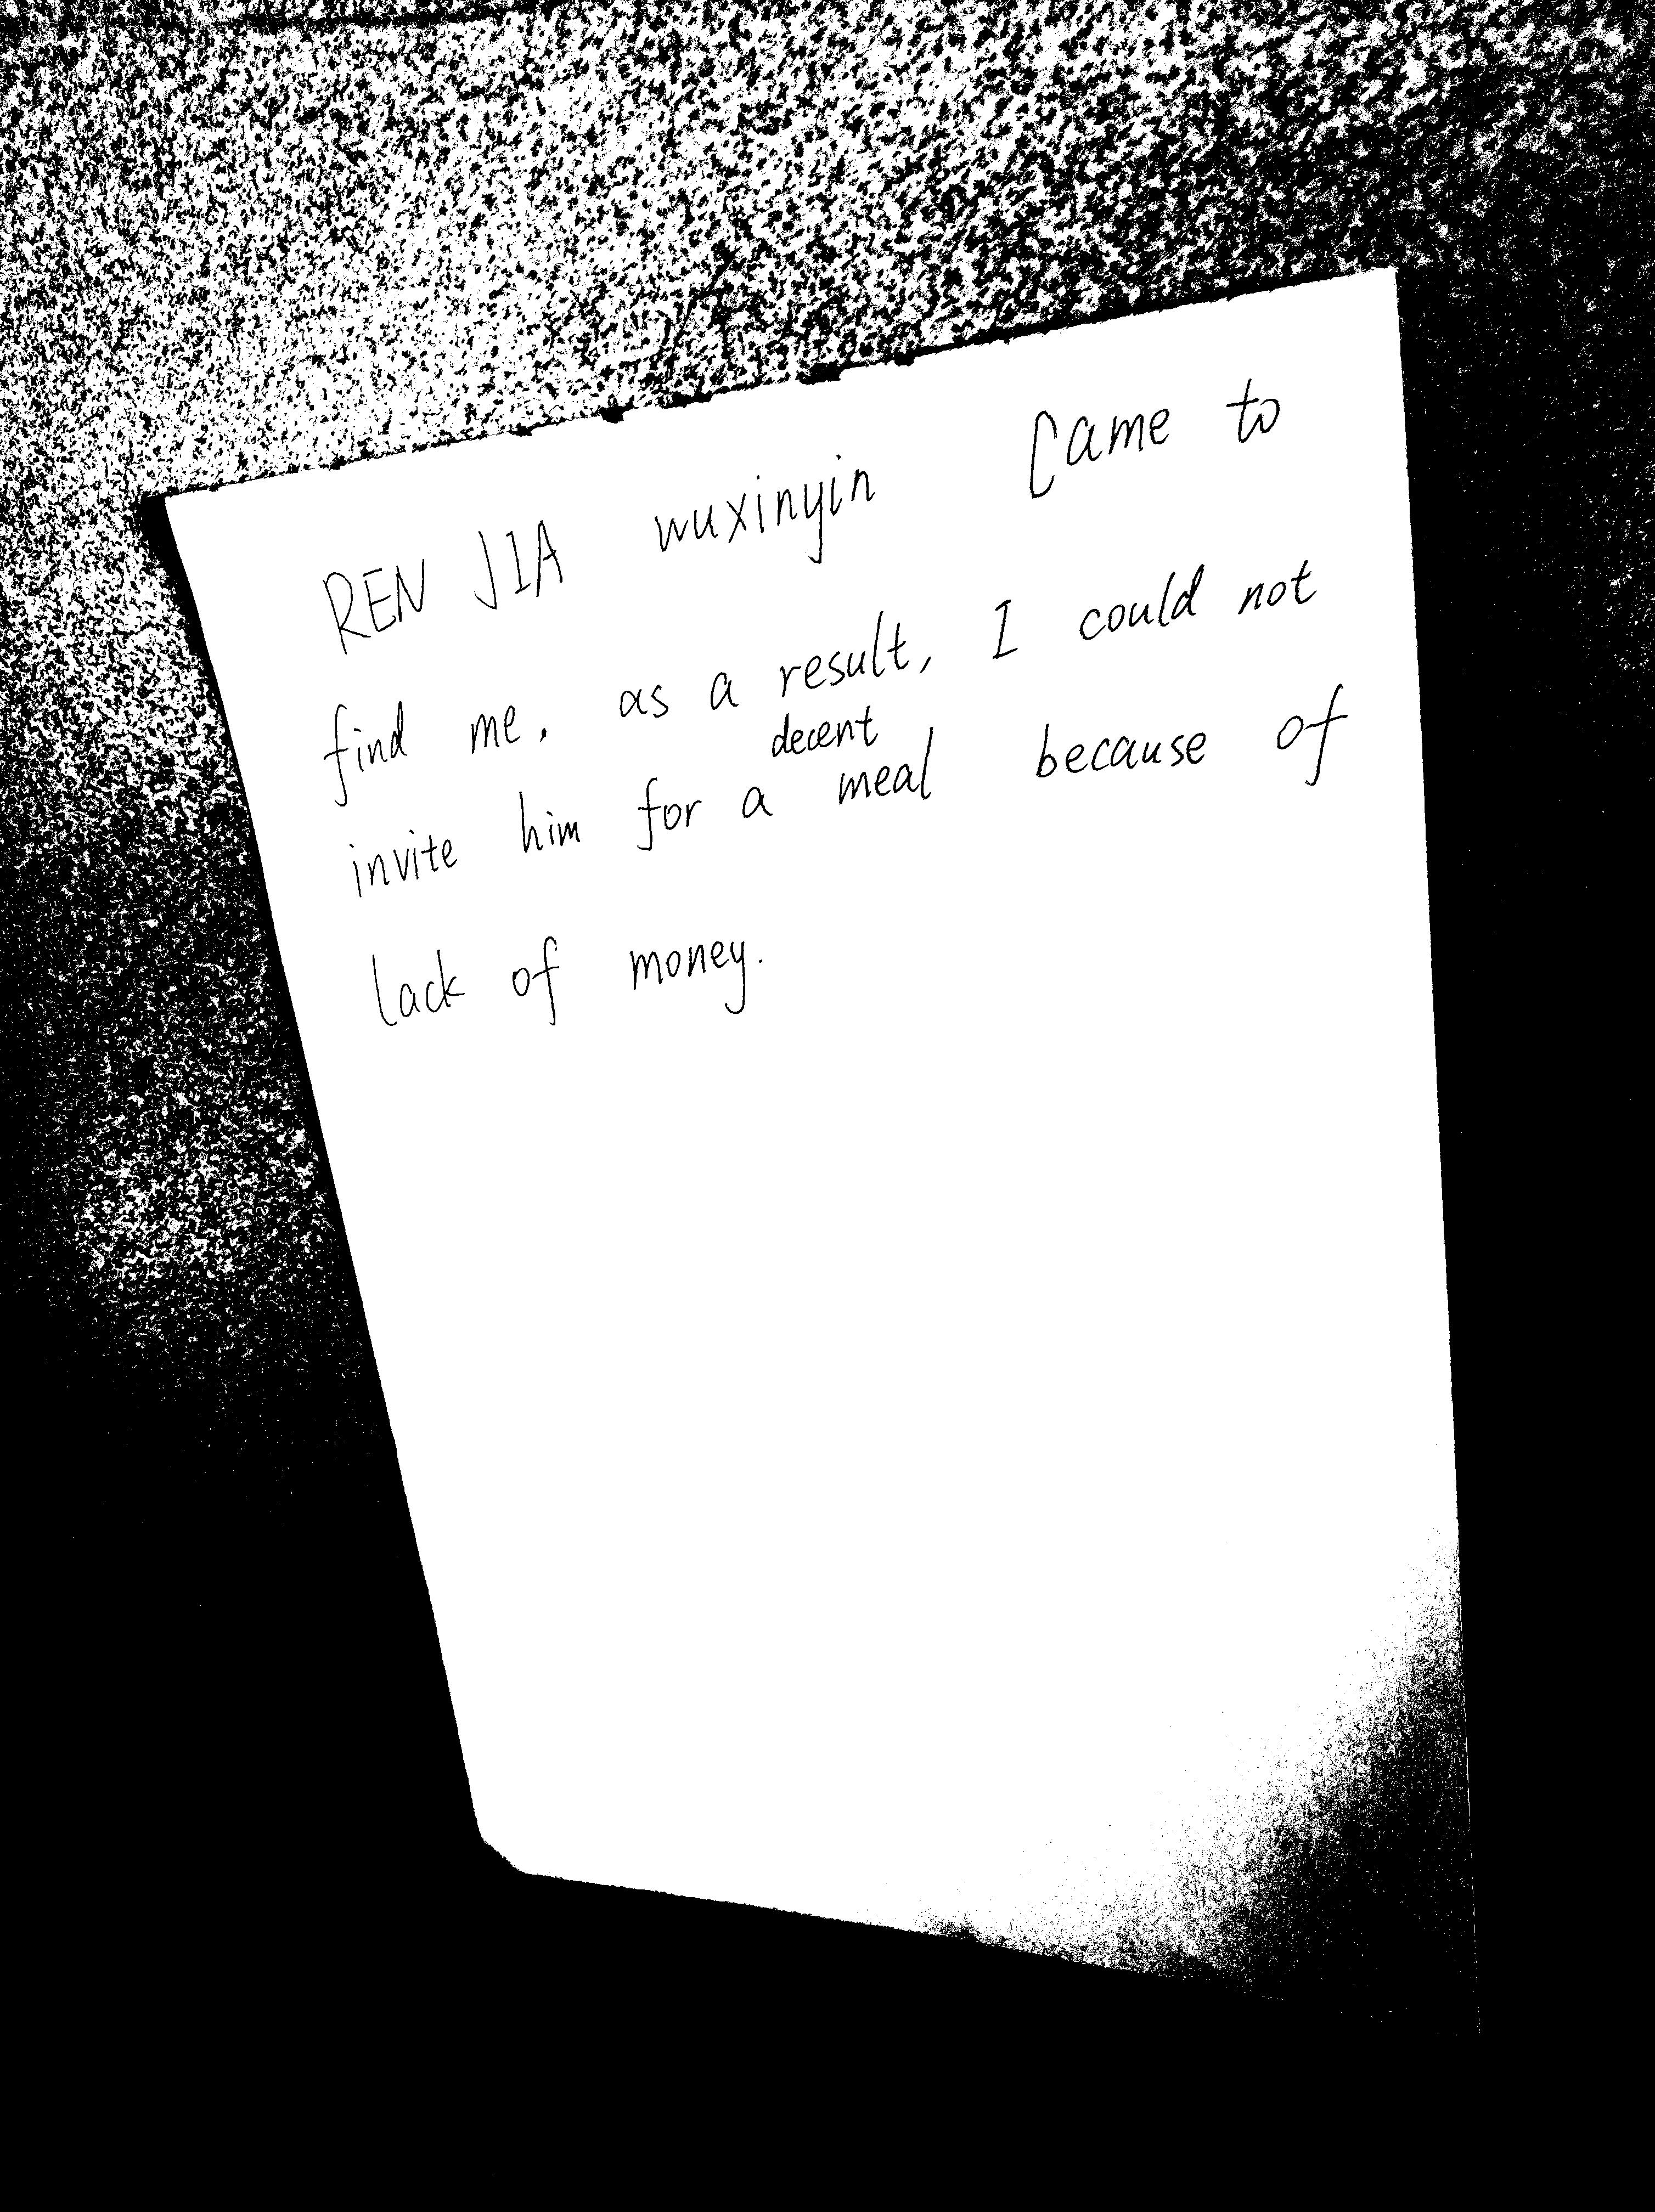 REN JIA wuxinyin Came to
find me. as a result, I could not
decent
invite him for a meal because of
lack of money.